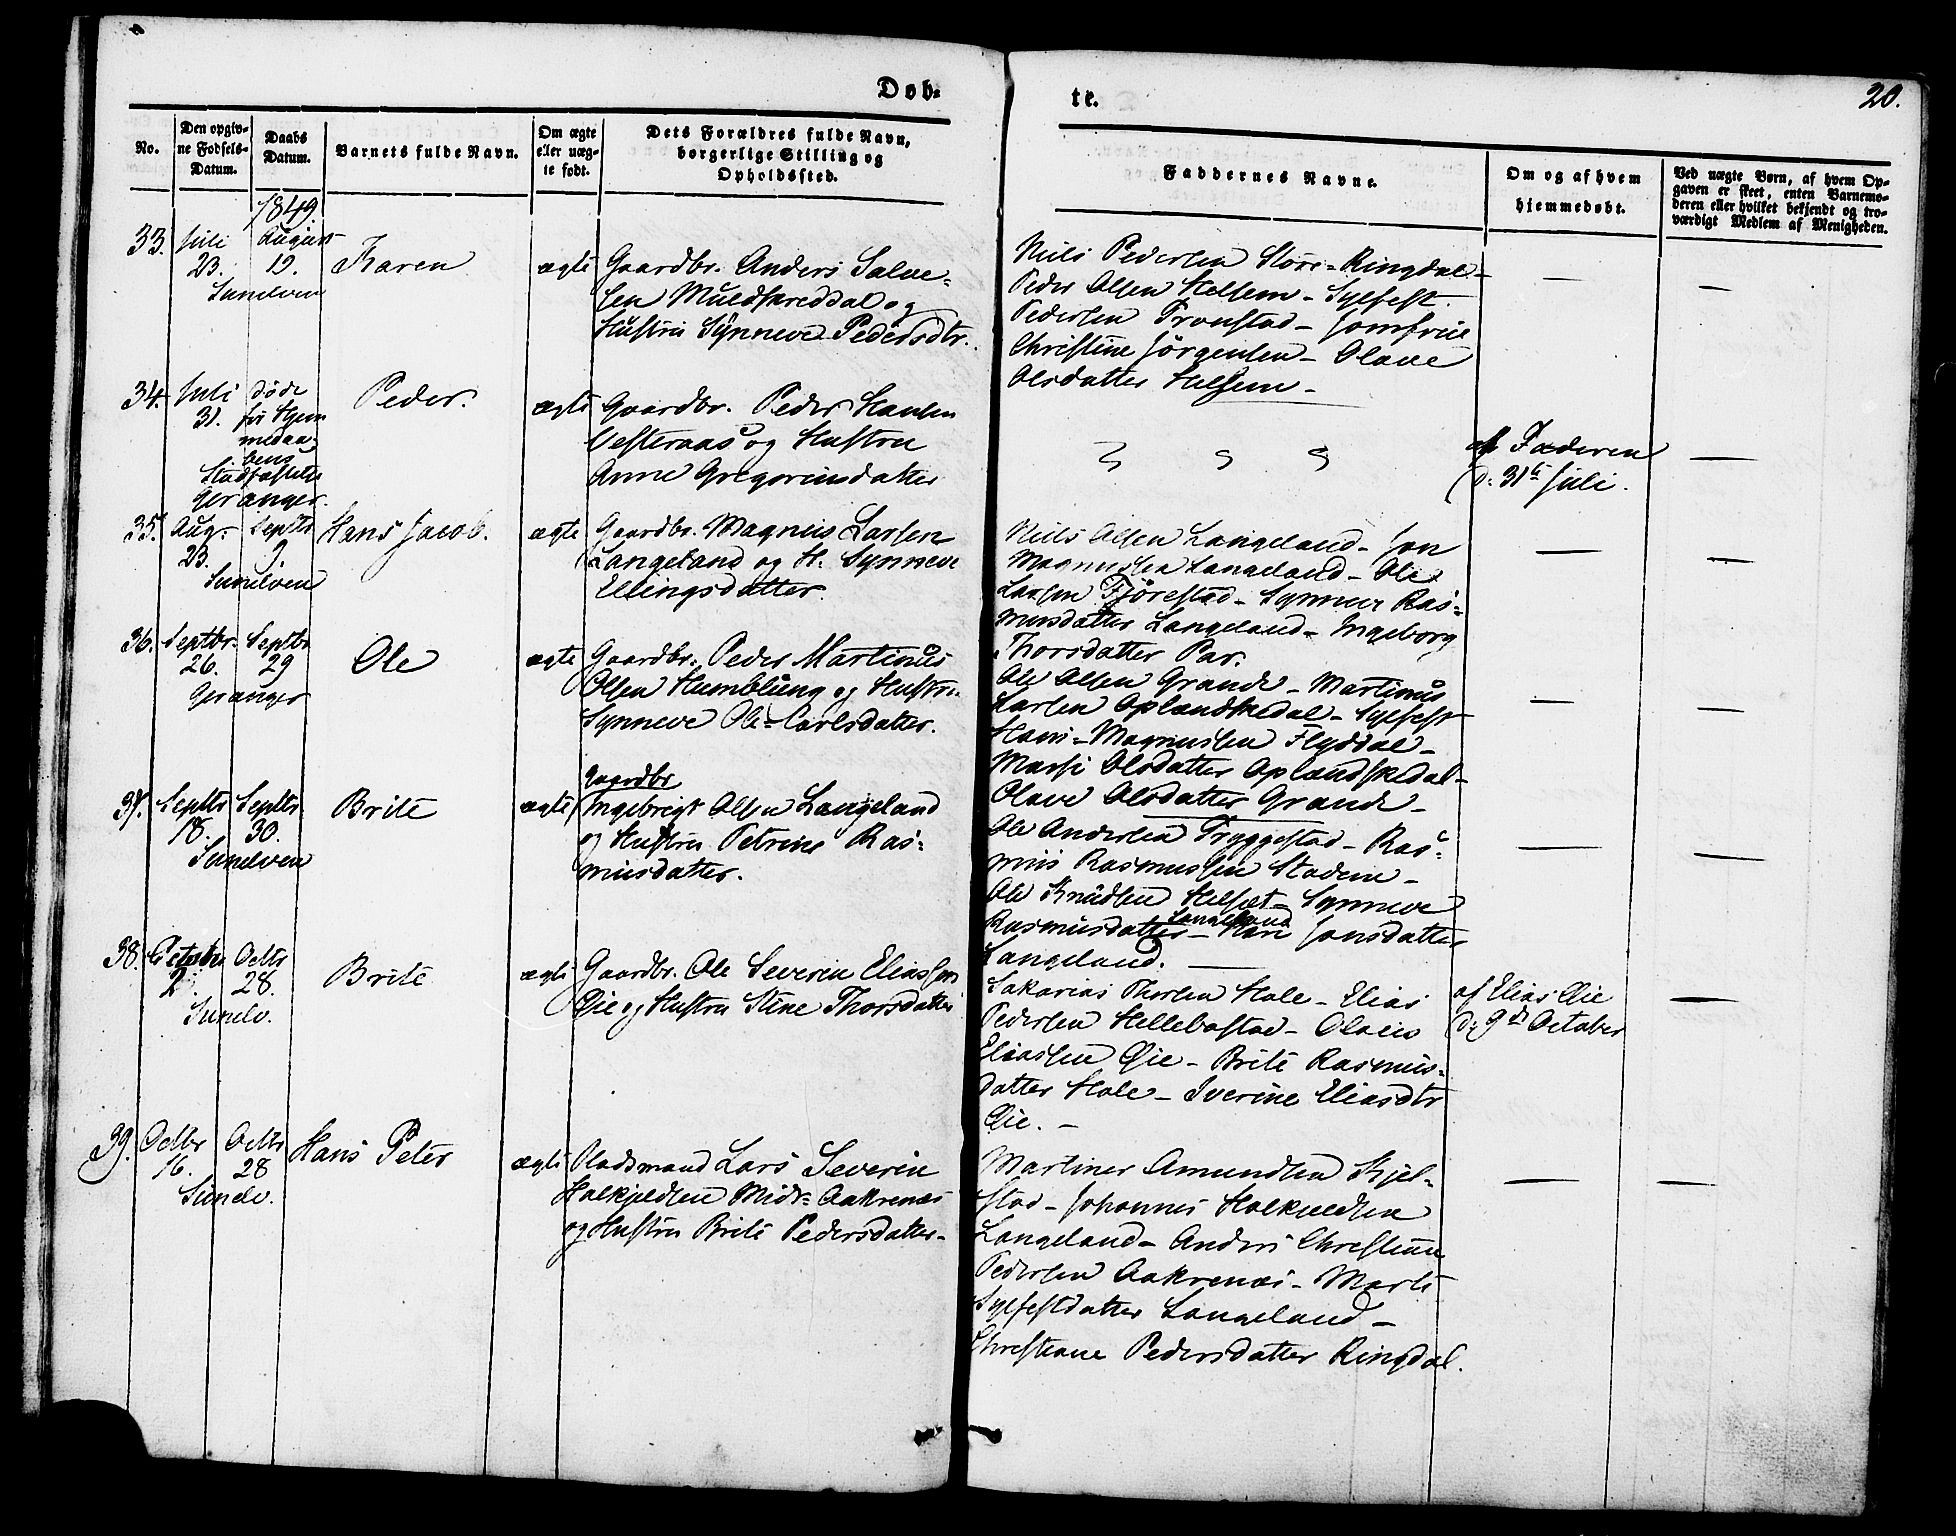 Døb-
te.
20.
No.
Den opgiv-
ne Fødsels-
Datum.
Daabs
Datum.
Barnets fulde Navn.
Om ægte
eller uæg-
te født.
Dets Forældres fulde Navn,
borgerlige Stilling og
Opholdssted.
Faddernes Navne.
Om og af hvem
hjemmedøbt.
Ved uægte Børn, af hvem Op-
gaven er skeet, enten Barnemo-
deren eller hvilket bekjendt og tro-
værdigt Medlem af Menigheden.
1849.
33. Juli August
23. 12. Karen ægte
Sunelven
Gaardbr. Anders Salve-
sen Muldsvoreddal og
Hustru Synneve Pedersdtr.
Niels Pedersen Store-Ringdal-
Peder Olsen Helsem - Sylfest
Pedersen Tronstad - Jomfrue
Christine Jørgensen - Olave
Olsdatter Helsem -
34. Juli døde
31. før Hjem
medaa-
bens
Stadfæstelse
Geranger.
Peder. ægte
Gaardbr. Peder Hansen
Vesteraas og Hustru
Anne Gregoriusdatter
af Faderen
d: 31te Juli.
35. Aug. Septbr
23. 9. Hans Jacob. ægte
Sunelven
Gaardbr. Magnus Larsen
Langeland og H. Synneve
Ellingsdatter.
Niels Olsen Langeland - Jon
Magnussen Langeland - Ole
Larsen Fjørestad - Synneve Ras-
musdatter Langeland - Ingeborg
Thorsdatter Par.
36. Septbr. Septbr
26. 29 Ole ægte
Geranger
Gaardbr. Peder Martinus
Olsen Humblung og Hustru
Synneve Ole-Carlsdatter.
Ole Olsen Grande - Martinus
Larsen Oplændskedal - Sylfest
Hans-Magnussen Flydal -
Marte Olsdatter Oplændskedal -
Olave Olsdatter Grande -
37. Septbr Septbr
18. 30. Brite ægte
Sunelven
Gaardbr
Ingebregt Olsen Langeland
og Hustru Petrine Ras-
musdatter.
Ole Andersen Tryggestad - Ras-
mus Rasmussen Stadem -
Ole Knudsen Helset - Synneve
Langeland
Rasmusdatter - Kari Jonsdatter
Langeland.
38. October Octbr
2. 28. Brite ægte
Sunelv.
Gaardbr. Ole Severin Eliassen
Øie og Hustru Stine Thorsdatter
Sakarias Thorsen Hole - Elias
Pedersen Hellebostad - Olaus
Eliassen Øie - Brite Rasmus-
datter Hole - Iverine Eliasdtr
Øie. -
af Elias Øie
d: 9de October
39. Octbr Octbr
16. 28 Hans Peter ægte
Sunelv.
Pladsmand Lars Severin
Halkjeldsen Midt-Aakrenæs
og Hustru Brite Pedersdatter -
Martines Amundsen Kjel-
stad - Johannes Halkjeldsen
Langeland - Anders Christian
Pedersen Aakrenæs - Marte
Sylfestdatter Langeland -
Christiane Pedersdatter Ringdal.